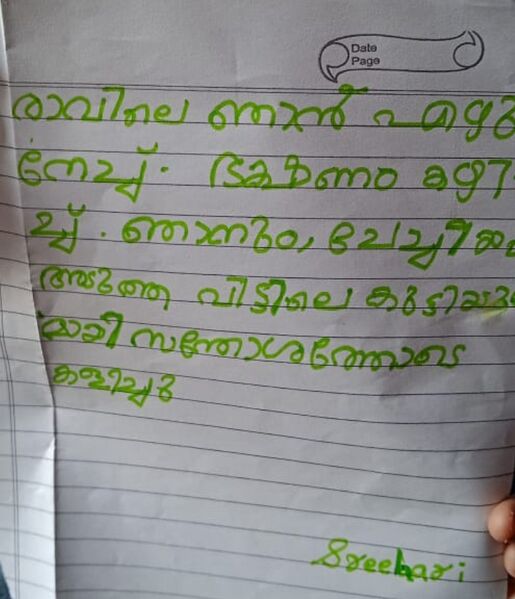 Date
Page
രാവിലെ ഞാൻ എഴു
നേച്ച്. ഭക്ഷണം കഴി
ച്ച്. ഞാനും, ചേച്ചിയും
അടുത്ത വിട്ടിലെ കുട്ടിയു
മായി സന്തോശത്തോടെ
കളിച്ചു
Sreehari